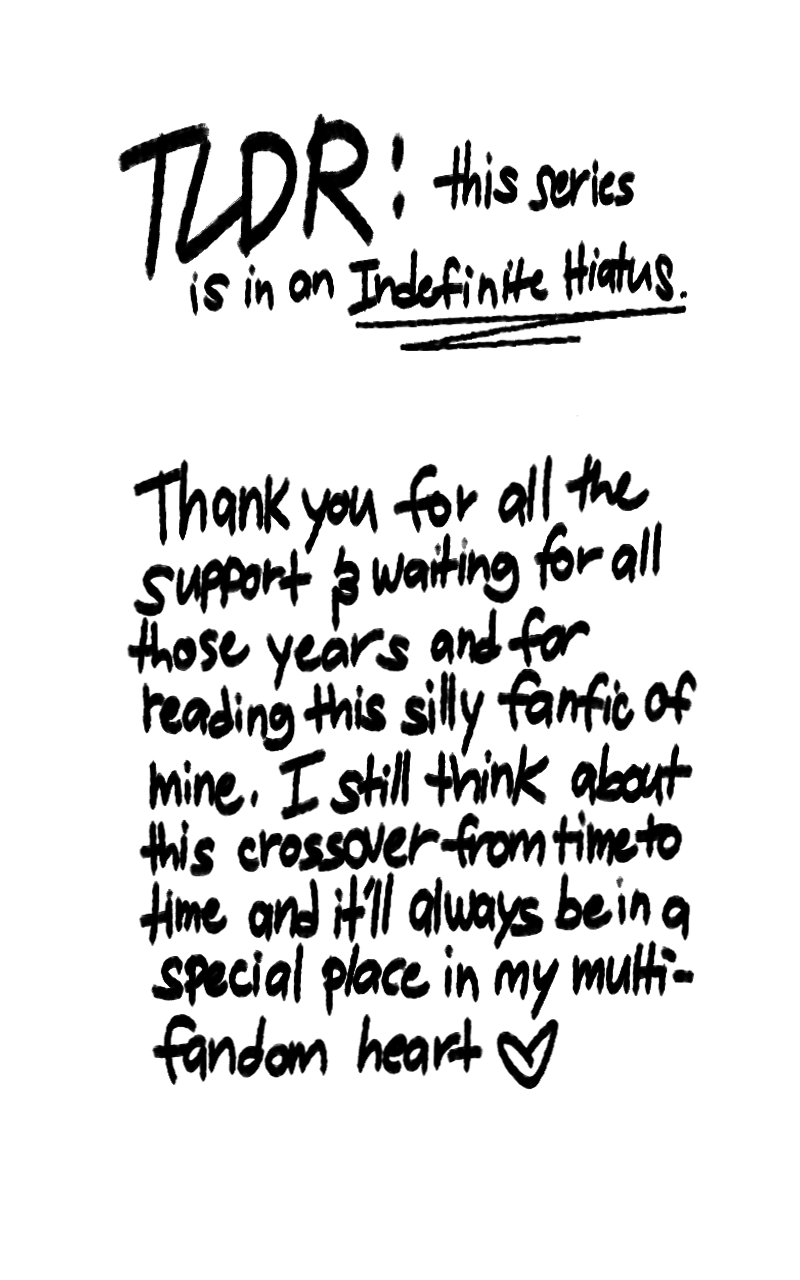 TLDR: this series
is in an Indefinite Hiatus.
Thank you for all the
support & waiting for all
those years and for
reading this silly fanfic of
mine. I still think about
this crossover from time to
time and it'll always be in a
special place in my multi-
fandom heart ♡